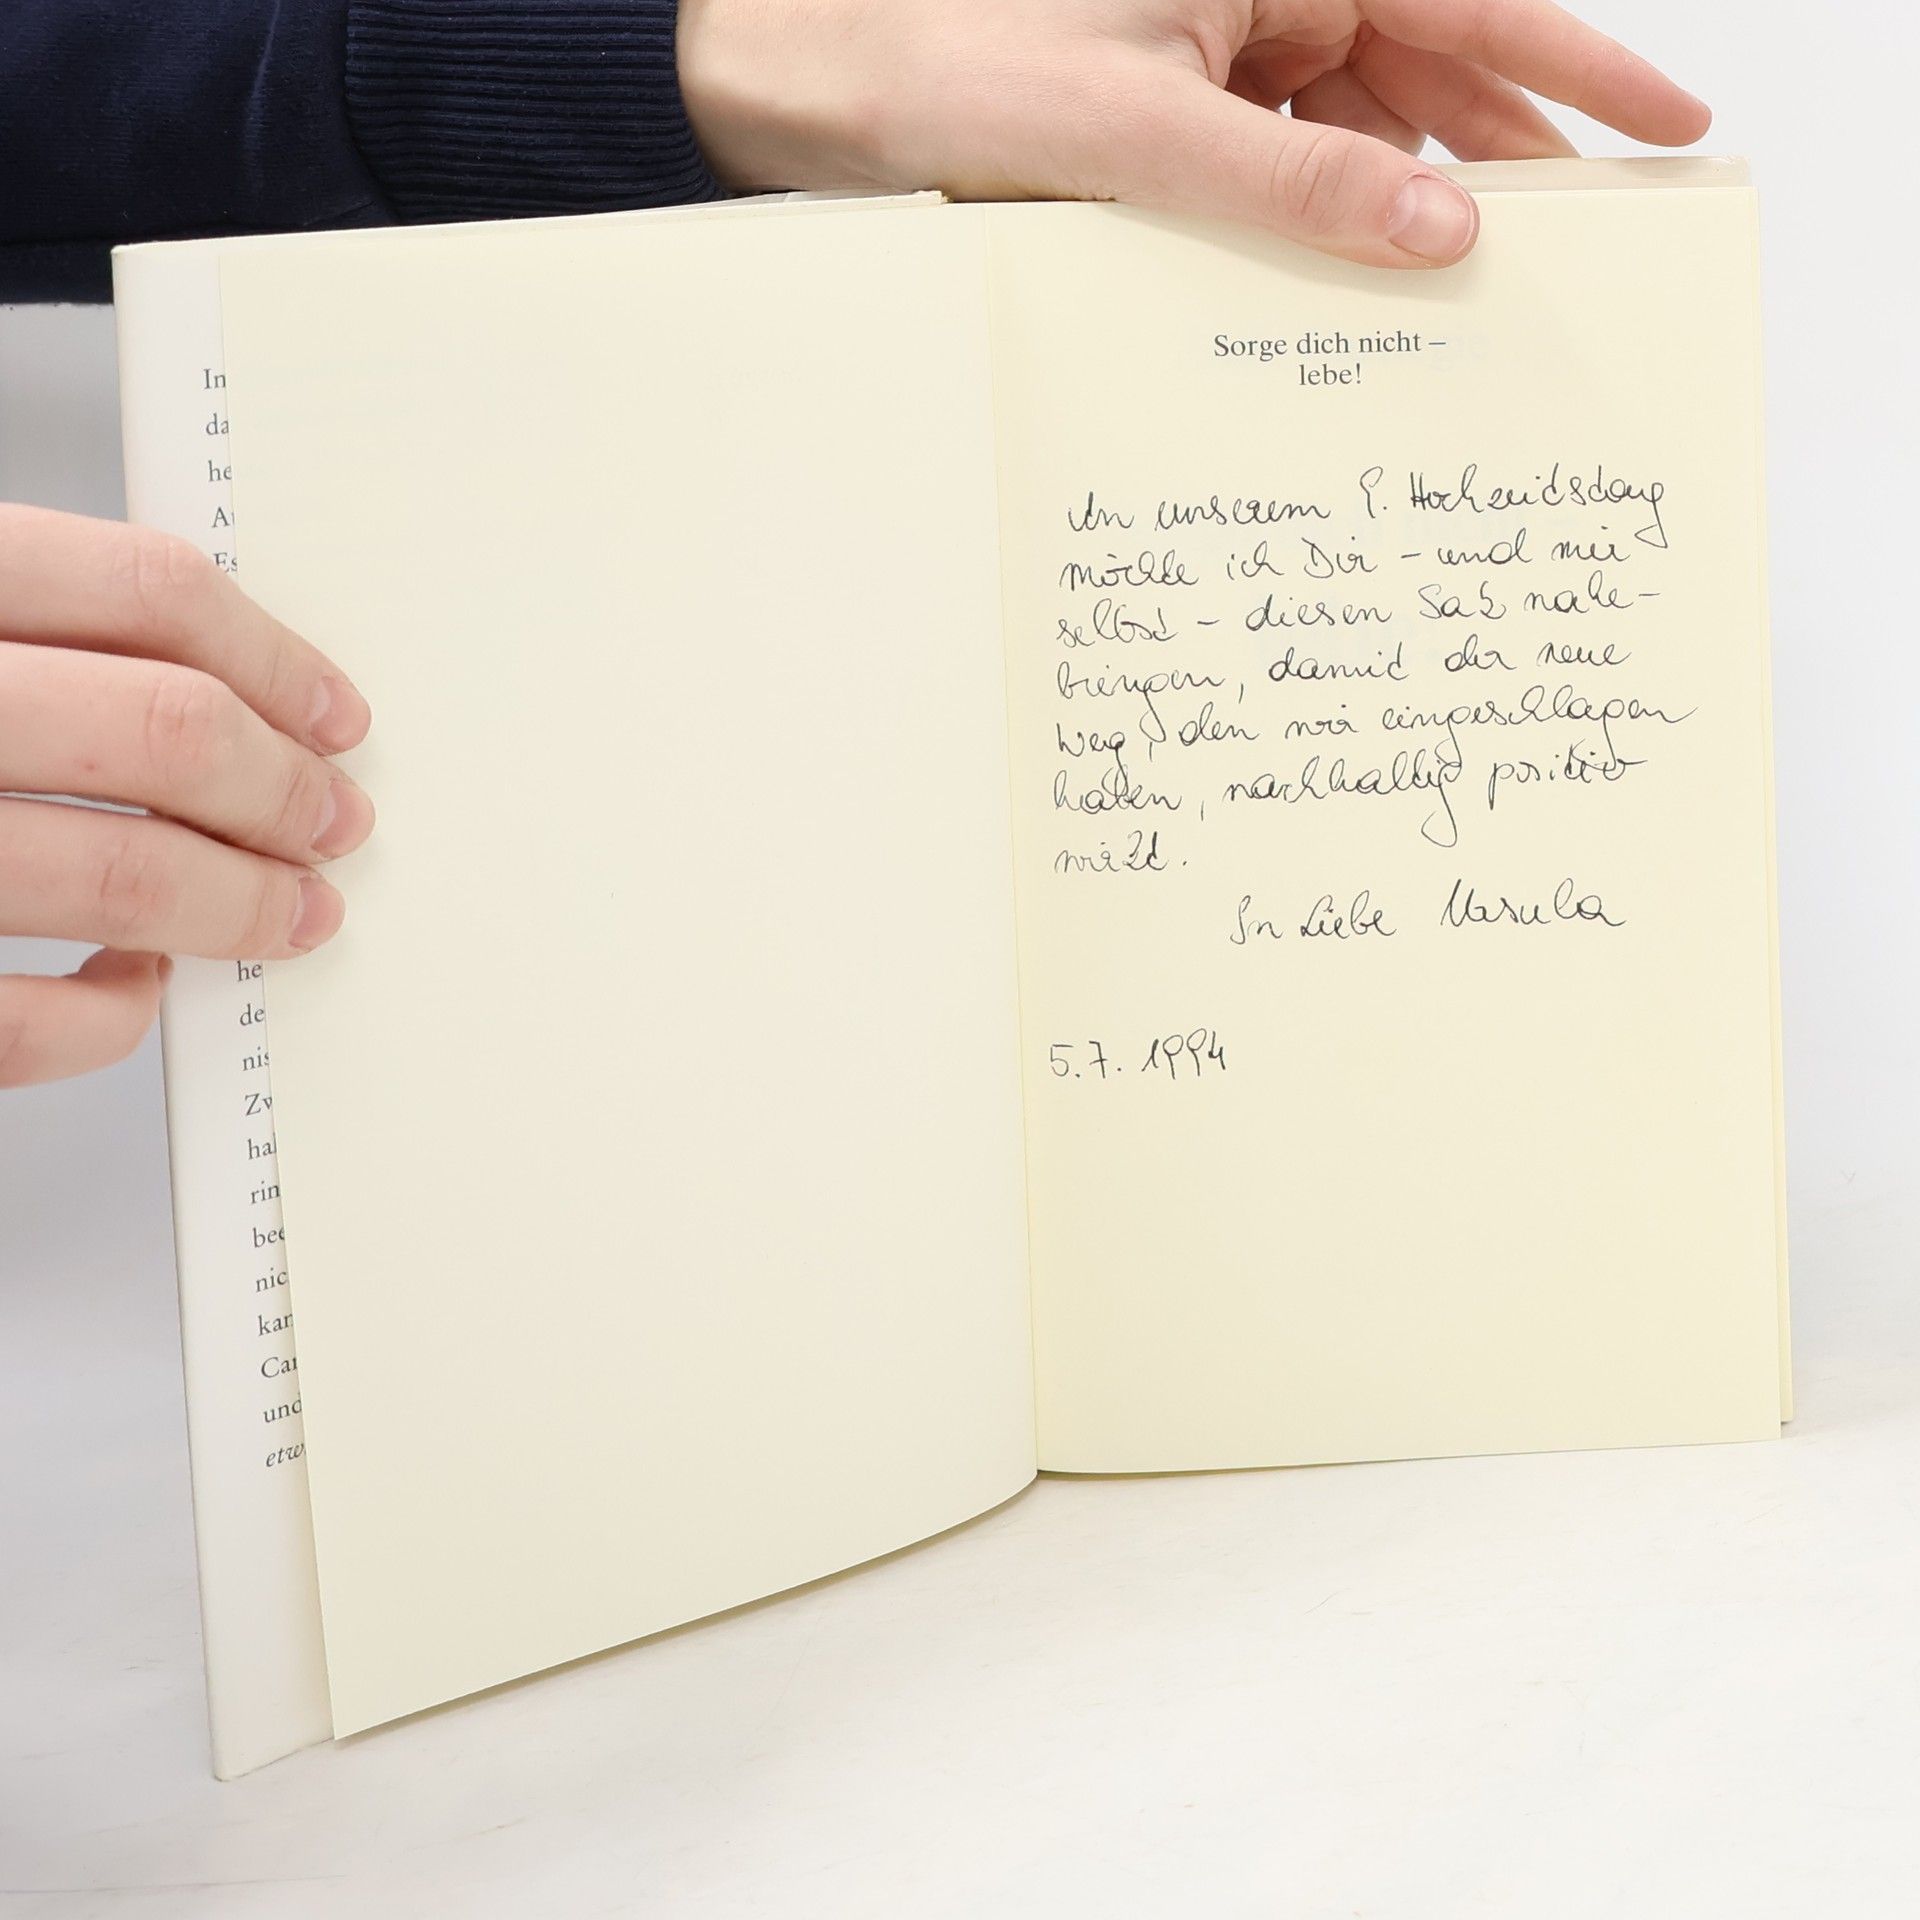 In
da
he
Au
Es
he
de
nis
Zw
hal
rin
bee
nic
kan
Car
und
etw
Sorge dich nicht –
lebe!
An unserem 9. Hochzeitstag
möchte ich Dir – und mir
selbst – diesen Satz nahe-
bringen, damit der neue
Weg, den wir eingeschlagen
haben, nachhaltig positiv
wird.
In Liebe Ursula
5.7. 1994